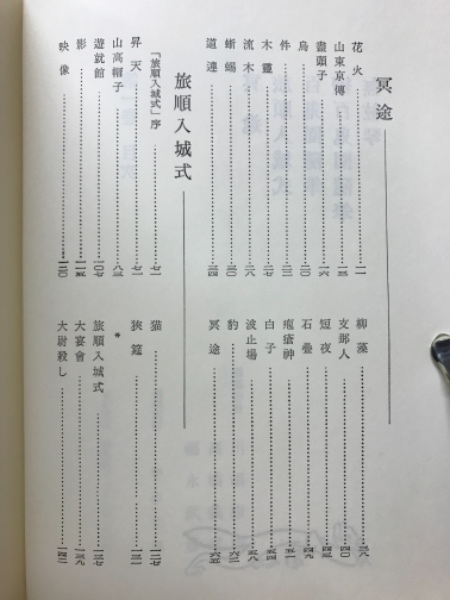 冥途
花火……一一
山東京傳……一三
盡頭子……一六
烏……二〇
件……二二
木靈……二七
流木……二八
蜥蜴……三〇
道連……三四
柳藻……三八
支那人……四〇
短夜……四三
石疊……四九
疱瘡神……五一
白子……五四
波止場……五八
豹……六二
冥途……六五
旅順入城式
「旅順入城式」序……七一
昇天……七二
山高帽子……八三
遊就館……一〇七
影……一一五
映像……一二〇
猫……一二七
狹筵……一三一
*
旅順入城式……一三七
大宴會……一三八
大尉殺し……一四二